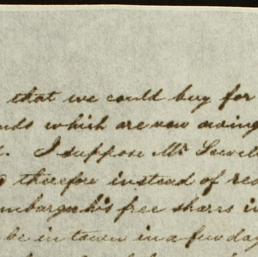 that we could buy for
nds which are now owing
I suppose Mr Sewell
therefore instead of re
mbargh's free shares i
be in town in a few day